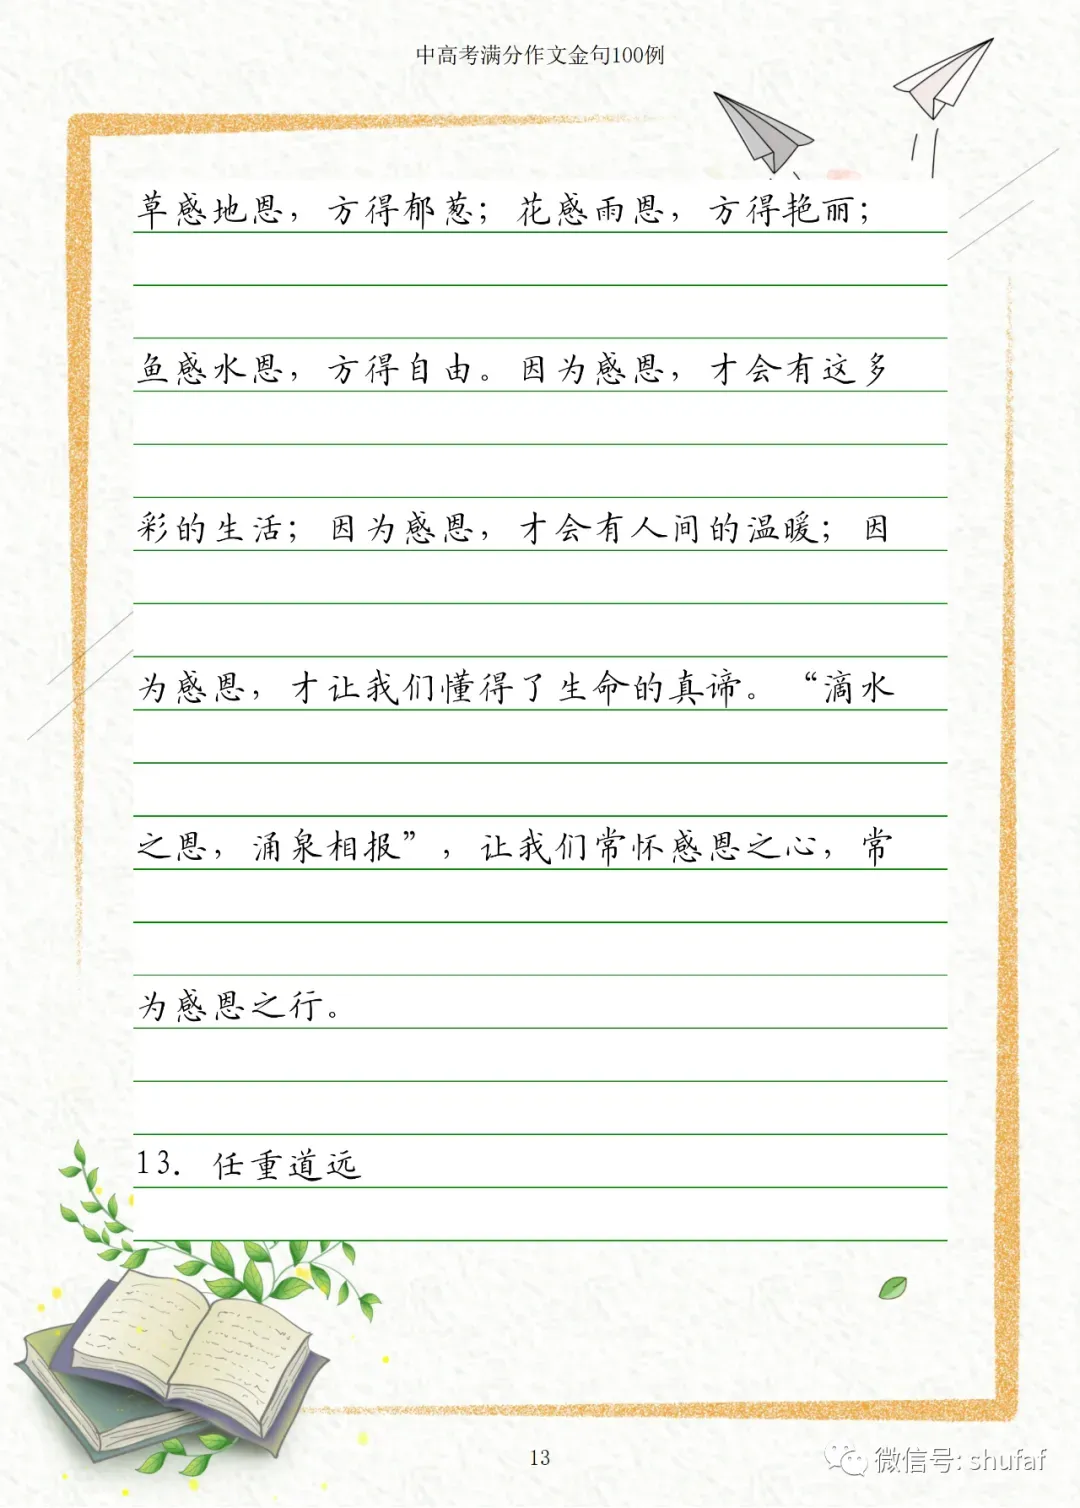 中高考满分作文金句100例
草感地恩，方得郁葱；花感雨恩，方得艳丽；
鱼感水恩，方得自由。因为感恩，才会有这多
彩的生活；因为感恩，才会有人间的温暖；因
为感恩，才让我们懂得了生命的真谛。“滴水
之恩，涌泉相报”，让我们常怀感恩之心，常
为感恩之行。
13. 任重道远
13
微信号: shufaf